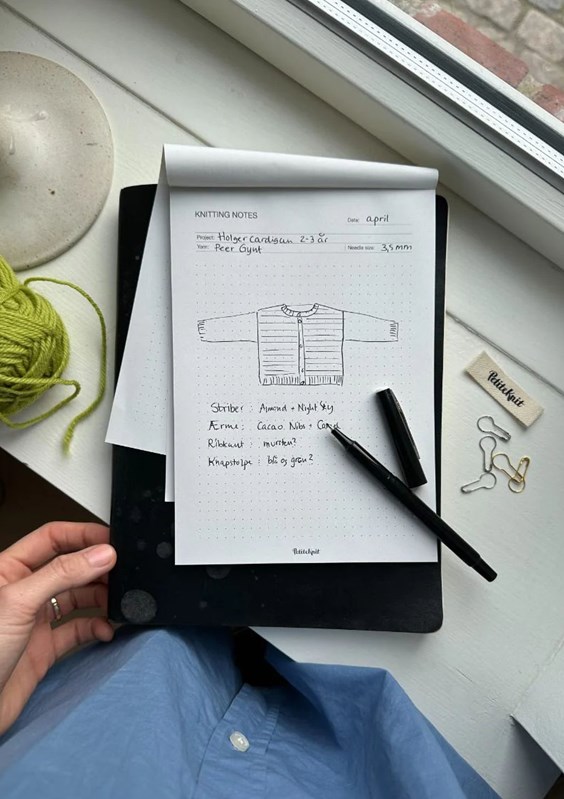 KNITTING NOTES
Date: april
Project: Holger Cardigan 2-3 år
Yarn: Peer Gynt
Needle size: 3,5 mm
Striber: Almond + Night Sky
Ærme: Cacao Nibs +
Ribkant:
Knapstolpe: blå og grøn?
PetiteKnit
PetiteKnit